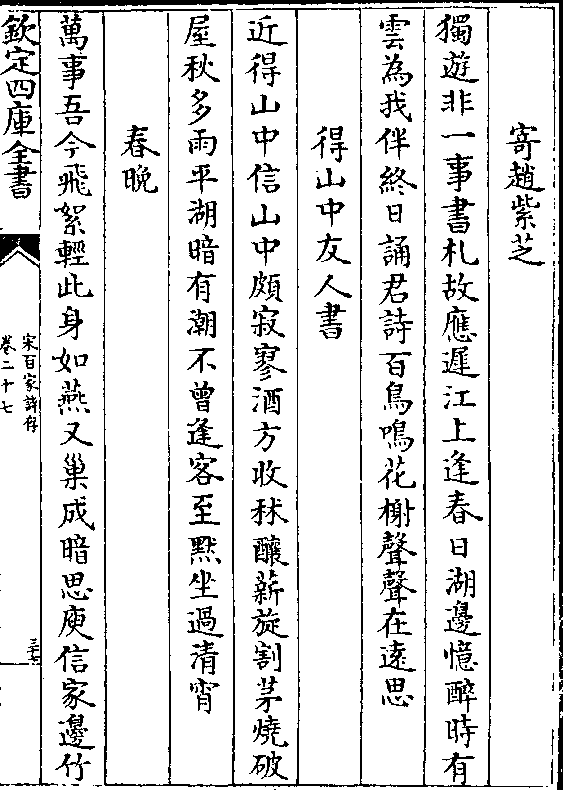 寄趙紫芝
獨遊非一事書札故應遲江上逢春日湖邊憶醉時有
雲為我伴終日誦君詩百鳥鳴花榭聲聲在遠思
得山中友人書
近得山中信山中頗寂寥酒方收秫釀薪旋割茅燒破
屋秋多雨平湖暗有潮不曾逢客至黙坐過清宵
春晚
萬事吾今飛絮輕此身如燕又巢成暗思庾信家邊竹
欽定四庫全書
宋百家詩存
卷二十七
三十七